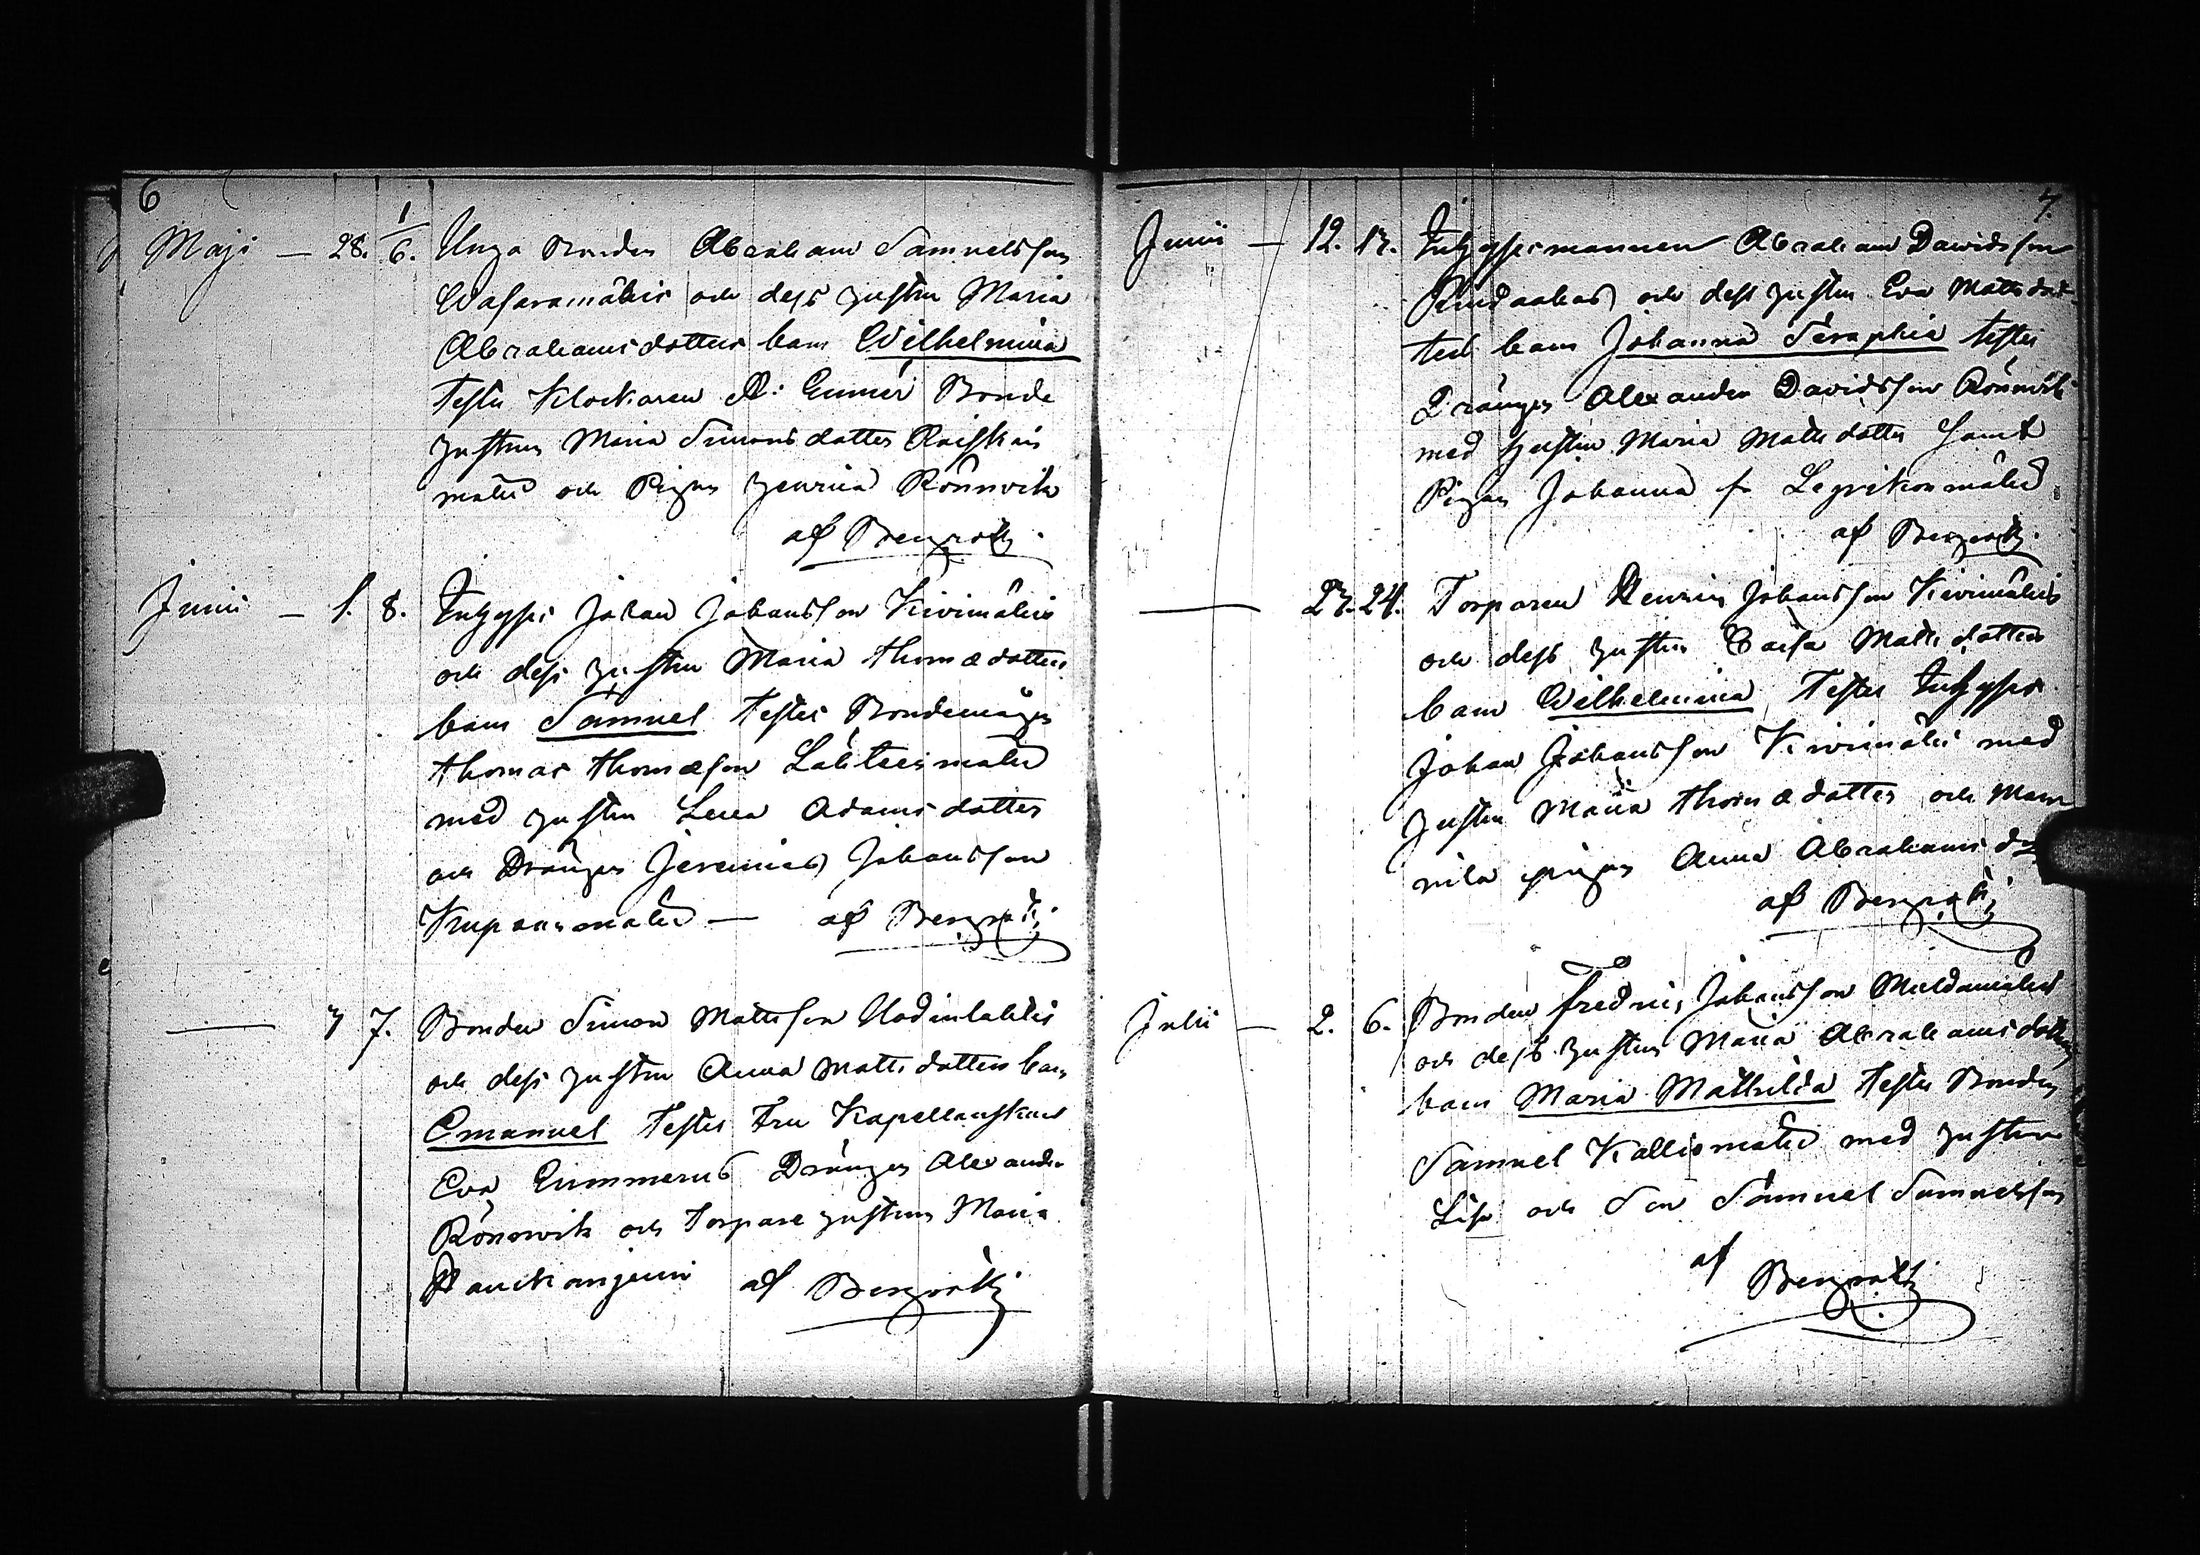 6
Maji — 28. 1/6. Unga Bonden Abraham Samuelsson
Wasaramäkis och dess hustru Maria
Abrahamsdotters barn Wilhelmina
Testes Klockaren Bonde
hustrun Maria Simonsdotter
mäki och Pigan Henrica Rönnvik
af Bergroth.
Junii — 1. 8. Inhyses Johan Johansson Kivimäkis
och dess hustru Maria Thomædotters
barn Samuel Testes Bondemågen
Thomas Thomæson Lähteismäki
med hustru Lena Adamsdotter
och Drängen Jeremias Johansson
Krupansmäki — af Bergroth
— 7 7. Bonden Simon Mattsson Uodinlahtis
och dess hustru Anna Mattsdotters barn
Emanuel Testes Fru Kapellanskan
Eva Gummerus Drängen Alexander
Rönnvik och Torpare hustrun Maria
af Bergroth
7.
Junii — 12. 13. Inhysesmannen Abraham Davidsson
och dess hustru Eva Mattsdot
ters barn Johanna Seraphia testes
Drängen Alexander Davidsson Rönnvik
med hustru Maria Mattsdotter samt
Pigan Johanna
af Bergroth.
— 23. 24. Torparen Henric Johansson Kivimäkis
och dess hustru Caisa Mattsdotters
barn Wilhelmina Testes Inhyses
Johan Johansson Kivimäki med
hustru Maria Thomædotter och
pigan Anna Abrahamsd
af Bergroth
Julii — 2. 6. Bonden Fredric Johansson Muldamäkis
och dess hustru Maria Abrahamsdotters
barn Maria Mathilda Testes Bonden
Samuel Kalliomäki med hustru
Lisa och Son Samuel Samuelsson
af Bergroth